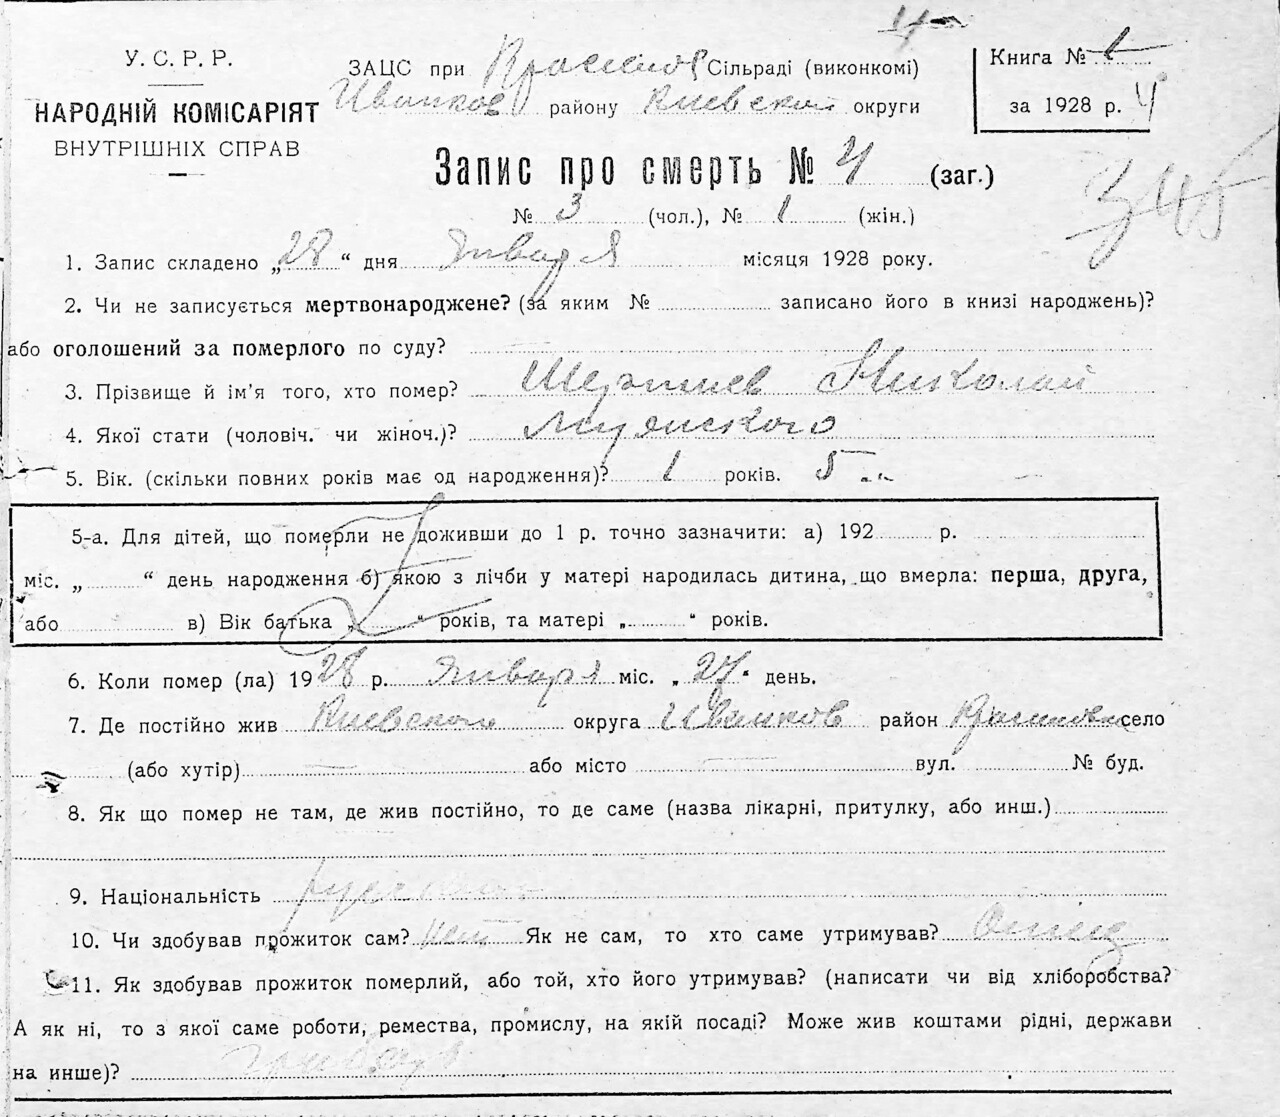 У. С. Р. Р.
НАРОДНІЙ КОМІСАРІЯТ
ВНУТРІШНІХ СПРАВ
ЗАЦС при Сільраді (виконкомі)
Иванков району Киевской округи
Книга № 1
за 1928 р. 4
Запис про смерть № 4 (заг.)
№ 3 (чол.), № 1 (жін.)
345
1. Запис складено „28“ дня Января місяця 1928 року.
2. Чи не записується мертвонароджене? (за яким № записано його в книзі народжень)?
або оголошений за померлого по суду?
3. Прізвище й ім'я того, хто помер? Николай
4. Якої стати (чоловіч. чи жіноч.)? Мужского
5. Вік. (скільки повних років має од народження)? 1 років. 5 м.
5-а. Для дітей, що померли не доживши до 1 р. точно зазначити: а) 192 р.
міс. „ “ день народження б) якою з лічби у матері народилась дитина, що вмерла: перша, друга,
або в) Вік батька „ “ років, та матері „ “ років.
6. Коли помер (ла) 1928 р. Января міс. „27“ день.
7. Де постійно жив Киевской округа Иванков район село
(або хутір) — або місто — вул. № буд.
8. Як що помер не там, де жив постійно, то де саме (назва лікарні, притулку, або инш.)
9. Національність
10. Чи здобував прожиток сам? нет Як не сам, то хто саме утримував? Отец
11. Як здобував прожиток померлий, або той, хто його утримував? (написати чи від хліборобства?
А як ні, то з якої саме роботи, ремества, промислу, на якій посаді? Може жив коштами рідні, держави
на инше)?